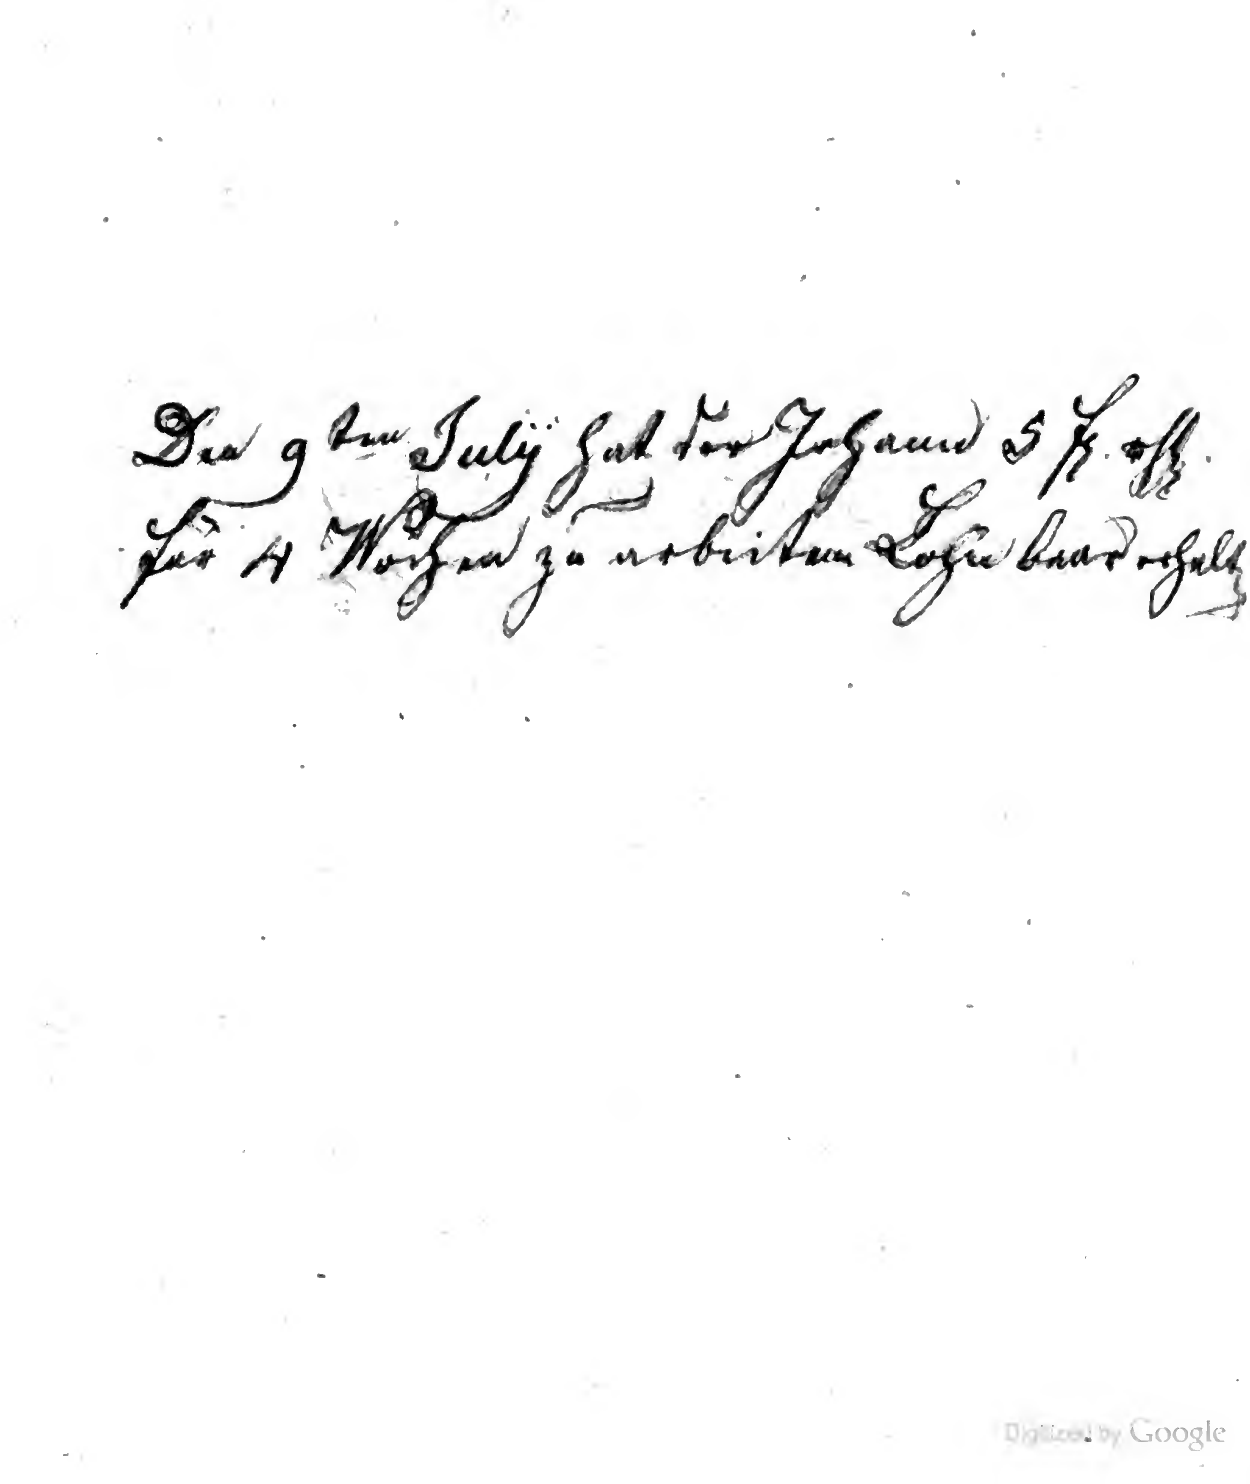 Den 9ten Julÿ hat der Johann 5 f.
für 4 Wochen zu arbeiten Lohn baar erhalt
Digitized by Google